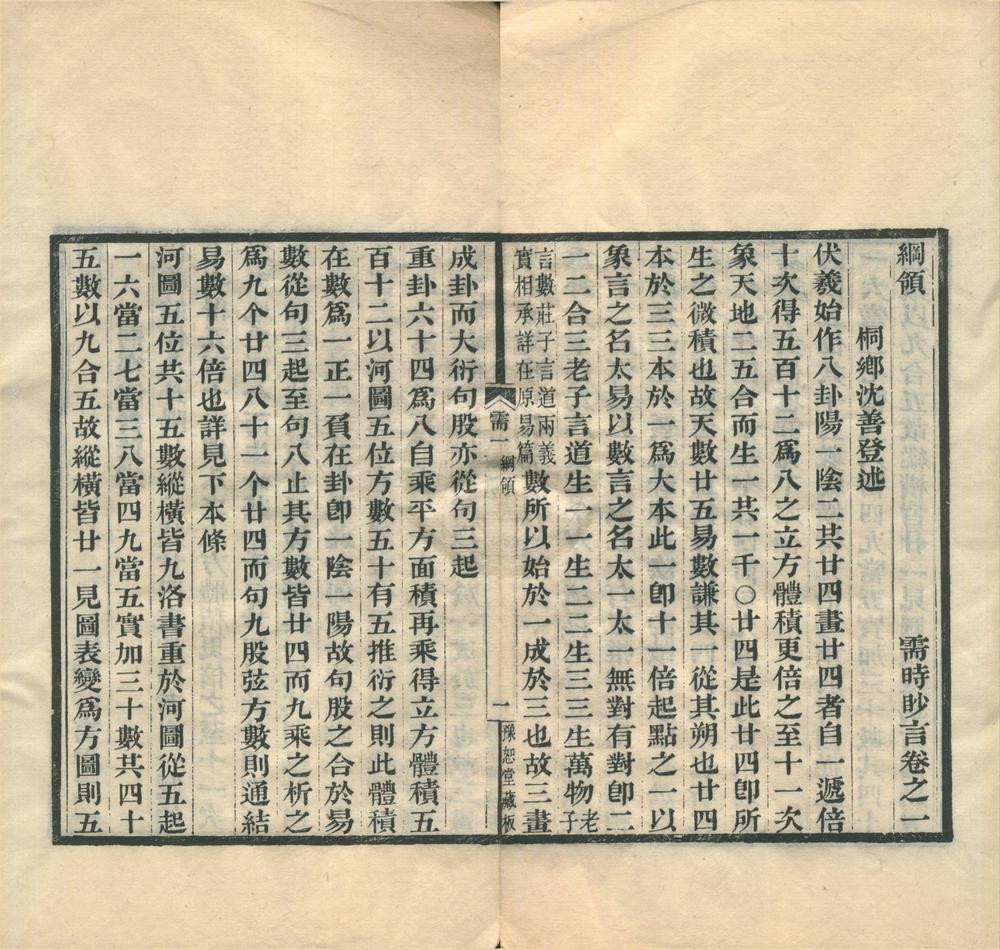 綱領　需時眇言卷之一
桐鄉沈善登述
伏羲始作八卦陽一陰二其廿四畫廿四者自一遞倍
十次得五百十二爲八之立方體積更倍之至十一次
象天地二五合而生一共一千〇廿四是此廿四卽所
生之微積也故天數廿五易數謙其一從其朔也廿四
本於三三本於一爲大本此一卽十一倍起點之一以
象言之名太易以數言之名太一太一無對有對卽二
一二合三老子言道生一一生二二生三三生萬物老子
言數莊子言道兩義
實相承詳在原易篇
數所以始於一成於三也故三畫
需一　綱領　一　豫恕堂藏板
成卦而大衍句股亦從句三起
重卦六十四爲八自乘平方面積再乘得立方體積五
百十二以河圖五位方數五十有五推衍之則此體積
在數爲一正一負在卦卽一陰一陽故句股之合於易
數從句三起至句八止其方數皆廿四而九乘之析之
爲九个廿四八十一个廿四而句九股弦方數則通結
易數十六倍也詳見下本條
河圖五位共十五數縱橫皆九洛書重於河圖從五起
一六當二七當三八當四九當五實加三十數共四十
五數以九合五故縱橫皆廿一見圖表變爲方圖則五